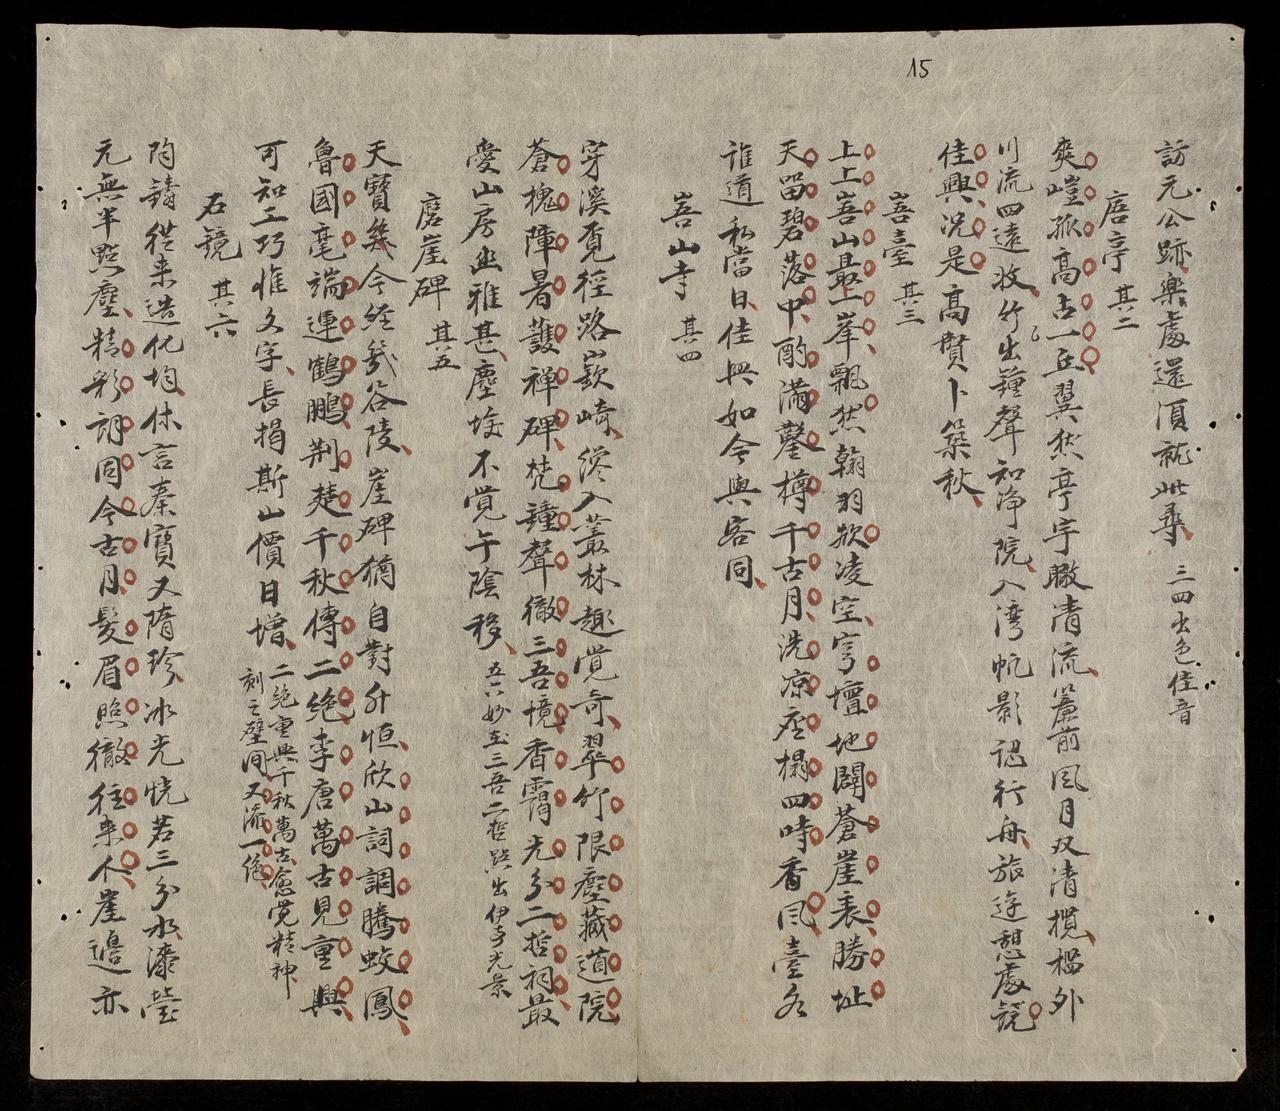 15
訪元公跡樂處還須就此尋 三四出色佳音
𢈪亭 其二
爽塏孤高占一丘翼然亭宇瞰清流簾前風月双清攬檻外
川流四遠收竹出鐘聲知淨院入湾帆影認行舟旅遊憩處競
佳興况是高賢卜築秋
峿臺 其三
上上峿山最上峯飄然翰羽欲凌空穹壇地闢蒼崖表勝址
天留碧落中酌滿鑿樽千古月洗凉座榻四時香風臺名
誰道私當日佳興如今與客同
峿山寺 其四
穿溪覓徑路嶔崎深入叢林趣覚奇翠竹限塵藏道院
蒼槐障暑護禅碑梵鐘聲徹三吾境香靄光分二哲祠最
愛山房幽雅甚塵埃不覚午陰移 五六妙在三吾二哲點出伊寺光景
磨崖碑 其五
天寶幾今經幾谷陵崖碑猶自對升恒欣山詞調騰蛟鳳
魯國毫端運鶴鵬荆楚千秋傳二絶李唐萬古見重興
可知工巧惟文字長揭斯山價日增 二絶重興千秋萬古愈覚精神
刻之壁间又添一絶
石鏡 其六
陶鑄從来造化均休言秦寶又隋珍冰光恍若三分水漆瑩
元無半點塵精彩詡同今古月髮眉照徹往来人崖邉亦